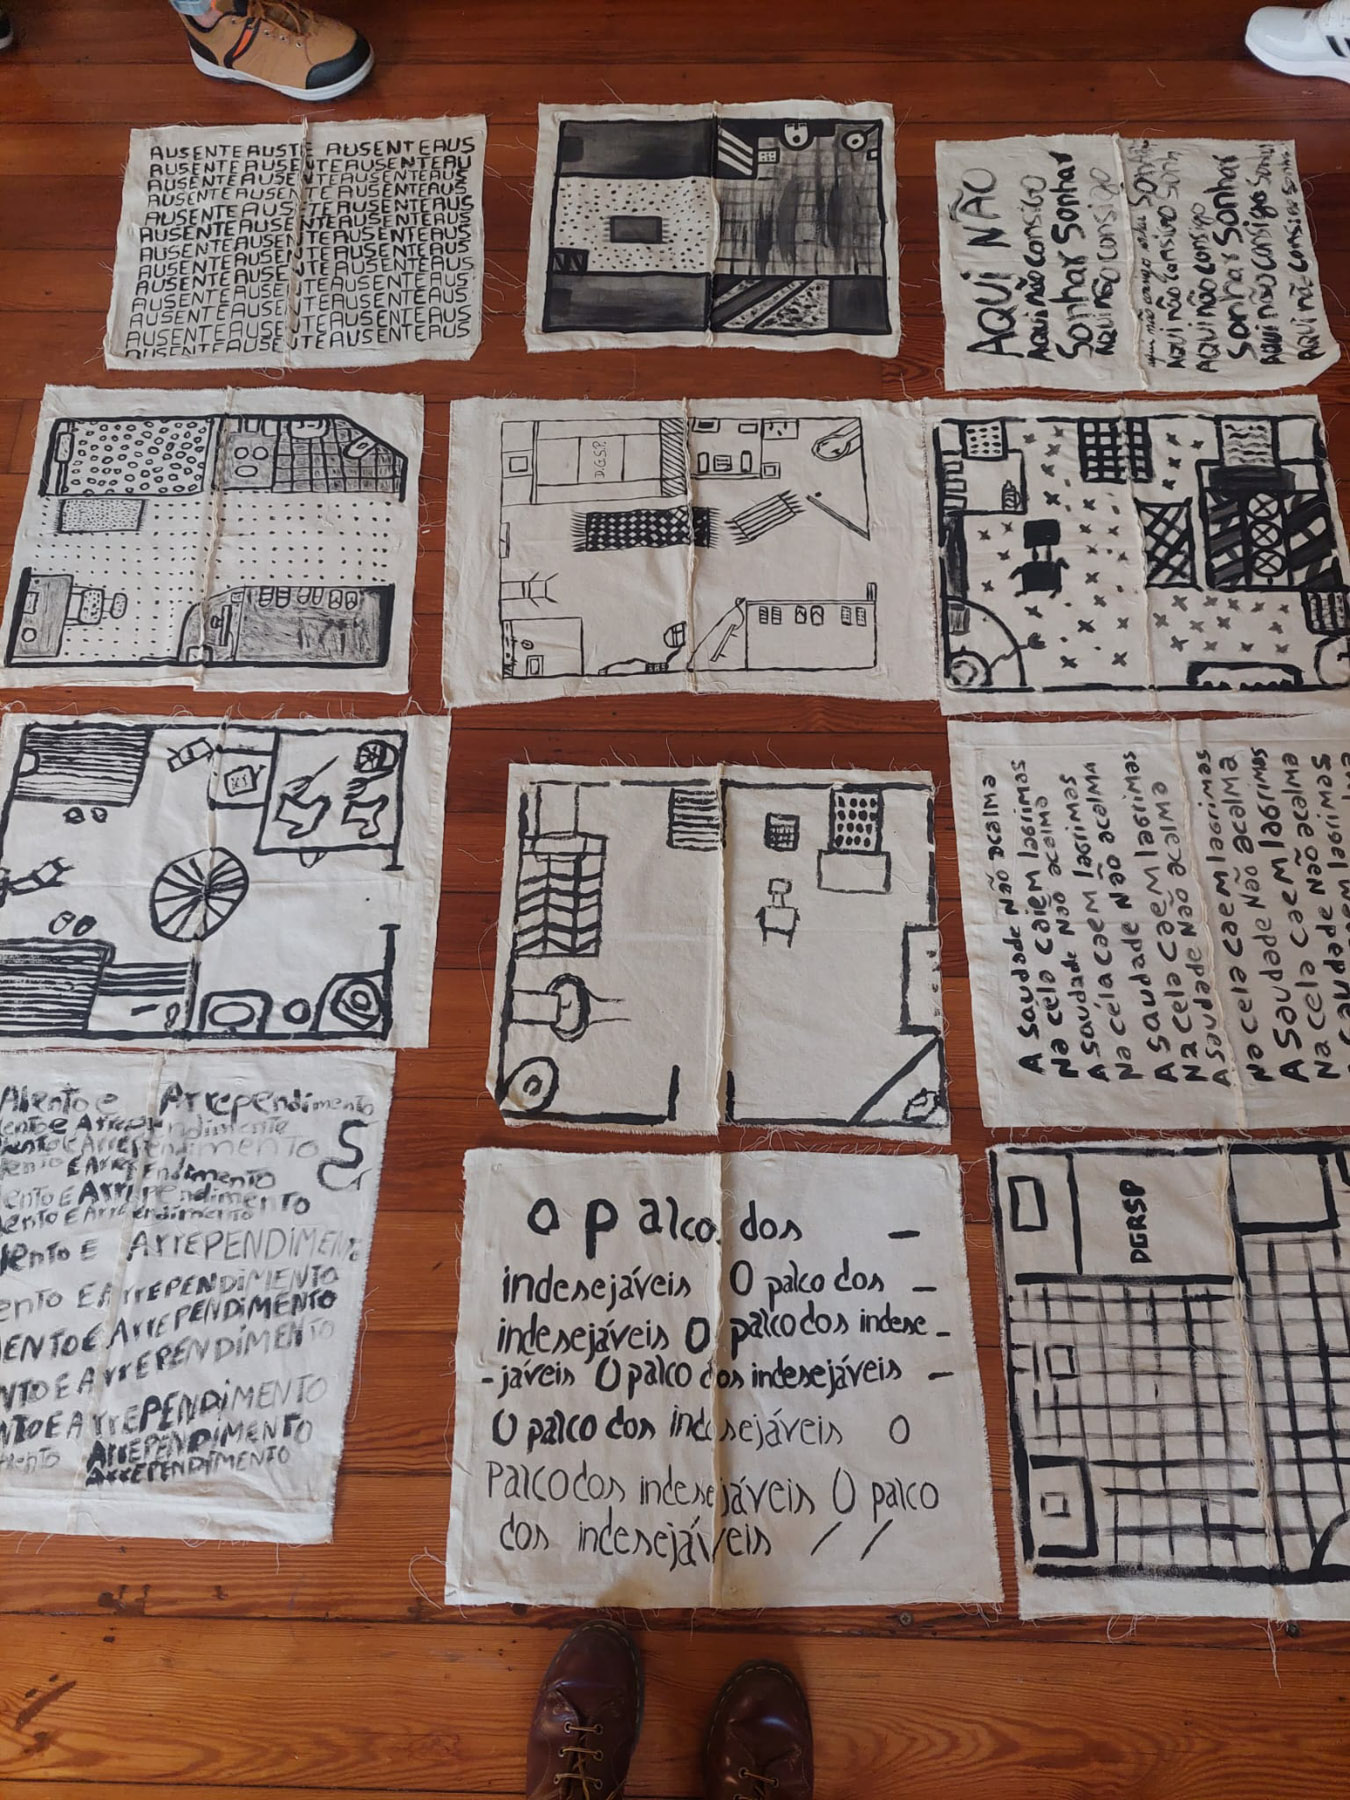 AUSENTE AUSTE AUSENTE AUS
AUSENTE AUSENTE AUSENTE AU
AUSENTE AUSENTE AUSENTE AUS
AUSENTE AUSENTE AUSENTE AUS
AUSENTE AUSENTE AUSENTE AUS
AUSENTE AUSENTE AUSENTE AUS
AUSENTE AUSENTE AUSENTE AUS
AUSENTE AUSENTE AUSENTE AUS
AUSENTE AUSENTE AUSENTE AUS
AUSENTE AUSENTE AUSENTE AUS
AUSENTE AUSENTE AUSENTE AUS
AUSENTE AUSENTE AUSENTE AUS
AUSENTE AUSENTE AUSENTE AUS
AUSENTE AUSENTE AUSENTE AUS
AQUI NÃO
AQui não consigo
Sonhar Sonhar
AQui não consigo
Sonhar
AQui não consigo Sonh
AQui não consigo
Sonhar Sonhar
AQui não consigo Sonh
AQui não consigo
D.G.S.P.
A saudade Não acalma
Na cela caiem lagrimas
A saudade Não acalma
Na céla caem lagrimas
A saudade Não acalma
Na cela caem lagrimas
A saudade Não acalma
Na cela caem lagrimas
A saudade Não acalma
Na cela caem lagrimas
Alento e Arrependimento
lento e Arrependimento
ento e Arrependimento
ento E Arrependimento
lento E Arrependimento
lento E Arrependimento
lento E ARREPENDIMENTO
ento E ARREPENDIMENTO
MENTO E ARREPENDIMENTO
NTO E ARREPENDIMENTO
NTO E ARREPENDIMENTO
ARREPENDIMENTO
ARREPENDIMENTO
O palco dos –
indesejáveis O palco dos –
indesejáveis O palco dos indese-
-jáveis O palco dos indesejáveis –
O palco dos indesejáveis O
palco dos indesejáveis O palco
dos indesejáveis //
DGRSP